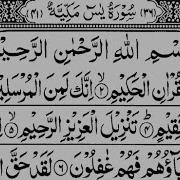 (٣٦) سُوْرَةُ يٰسٓ مَكِّيَّةٌ (٤١)
سْمِ اللهِ الرَّحْمٰنِ الرَّحِيْمِ
قُرْاٰنِ الْحَكِيْمِ ٢ اِنَّكَ لَمِنَ الْمُرْسَلِيْ
قِيْمٍ ٤ تَنْزِيْلَ الْعَزِيْزِ الرَّحِيْمِ ٥ لِ
بَآؤُهُمْ فَهُمْ غٰفِلُوْنَ ٦ لَقَدْ حَقَّ ا